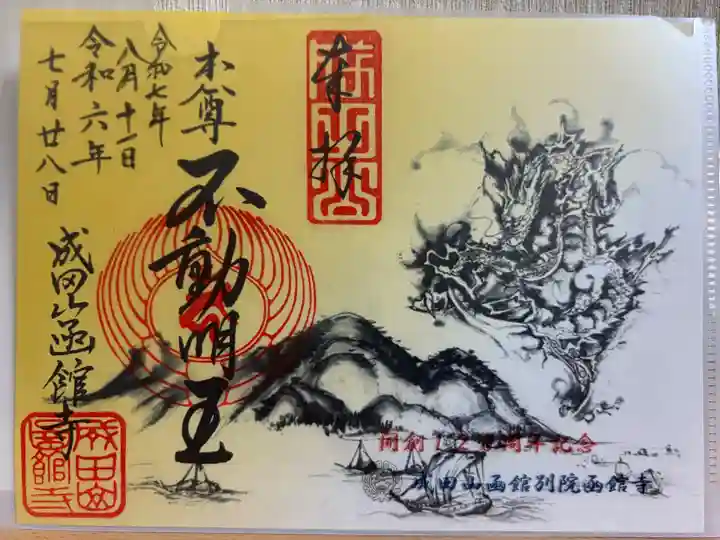 奉拝
本尊
不動明王
令和七年
八月十一日
令和六年
七月廿八日
成田山函館寺
成田山
函館寺
開創120周年記念
成田山函館別院函館寺